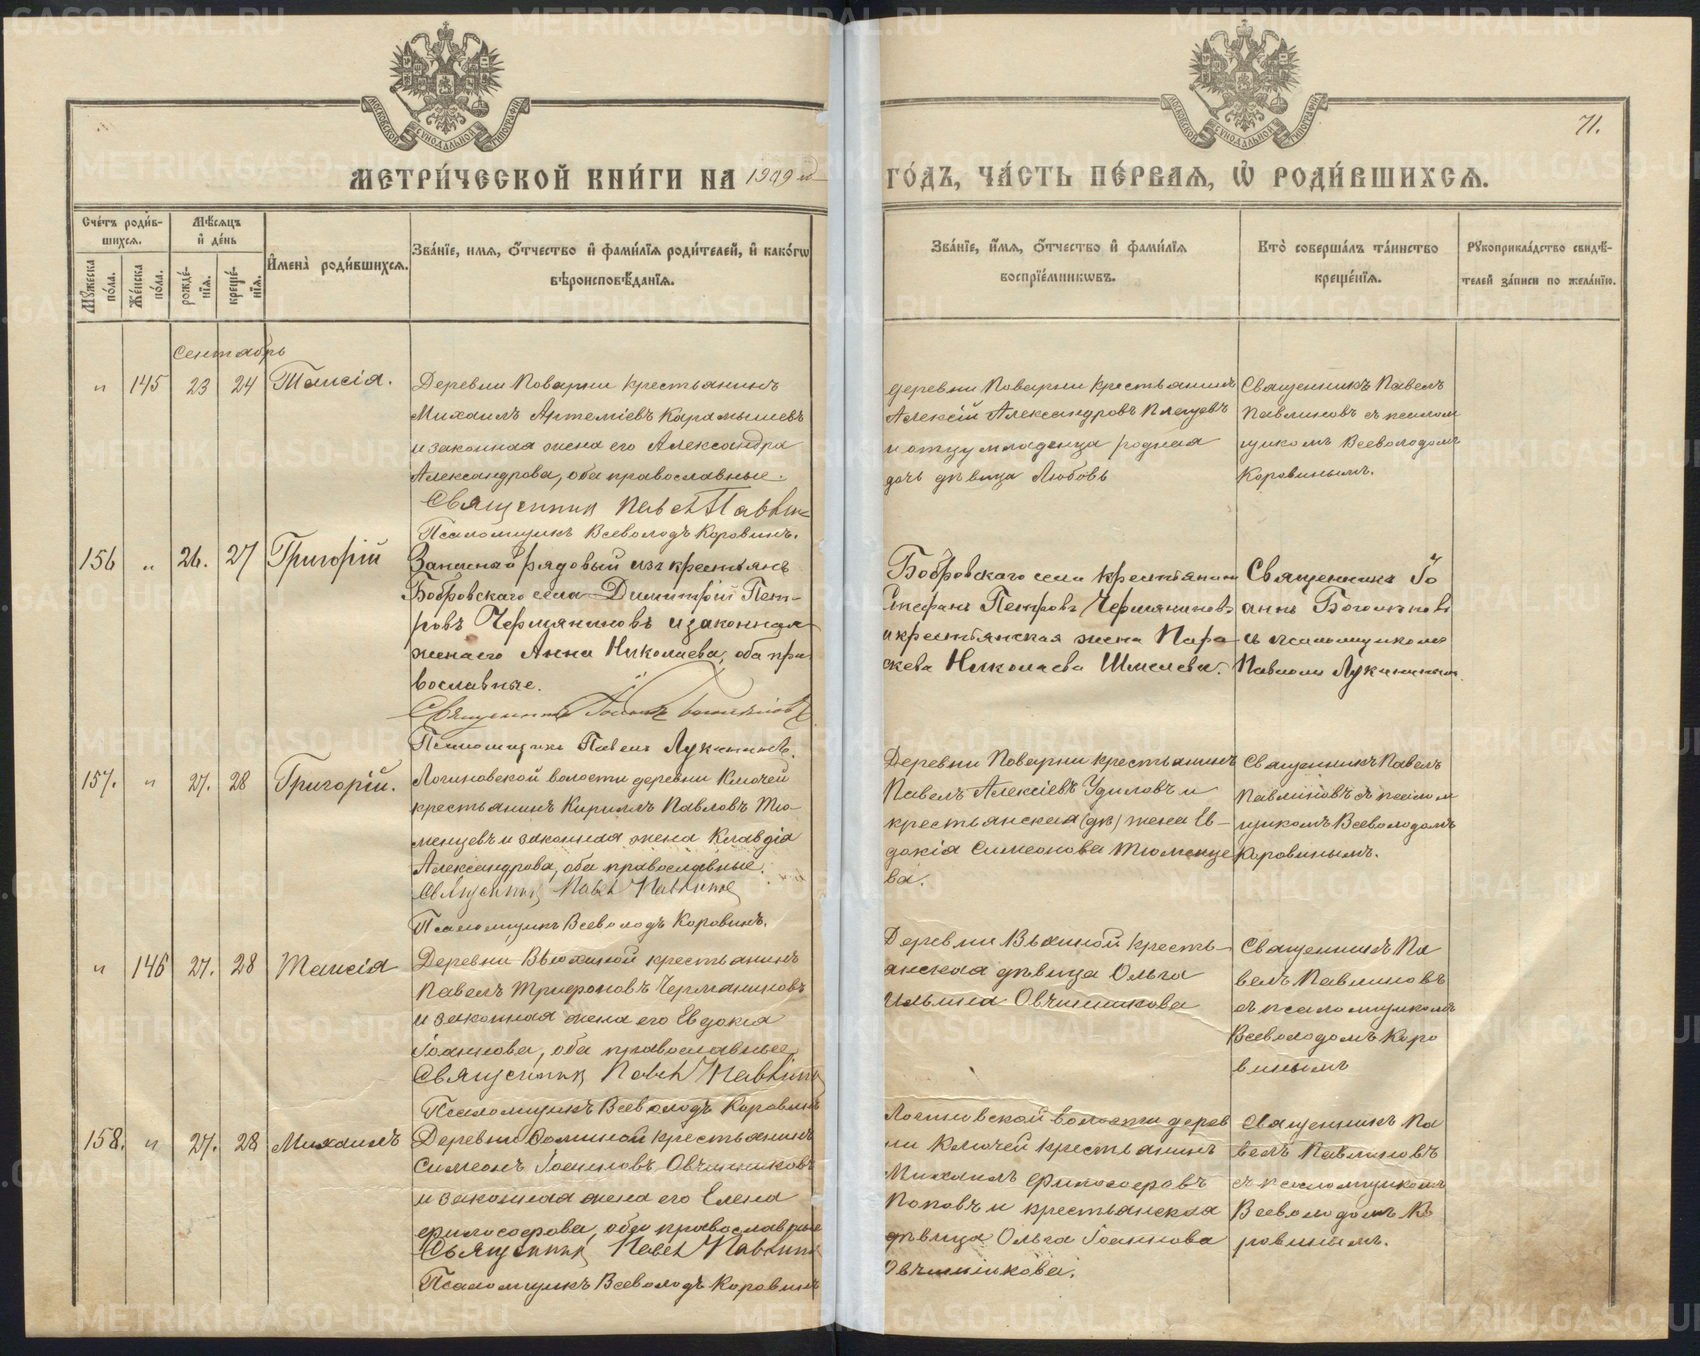 71.
МЕТРИ́ЧЕСКОЙ КНИ́ГИ НА 1909 й
ГО́ДЪ, ЧА́СТЬ ПЕ́РВАЯ, Ѡ҆ РОДИ́ВШИХСѦ.
Сче́тъ роди́в-
шихсѧ.
Мѣ́сѧцъ
и҆ де́нь
Мꙋ́жеска по́ла.
Же́нска по́ла.
рожде́-
нїѧ.
креще́-
нїѧ.
И҆мена̀ роди́вшихсѧ.
Зва́нїе, имѧ, ѻ҆́тчество и҆ фами́лїѧ роди́телей, и҆ како́гѡ
вѣроисповѣ́данїѧ.
Зва́нїе, и҆́мѧ, ѻ҆́тчество и҆ фами́лїѧ
воспрїе́мникѡвъ.
Кто̀ соверша́лъ та́инство
креще́нїѧ.
Рꙋкоприкла́дство свидѣ́-
телей за́писи по жела́нїю.
Сентябрь
" 145 23 24 Таисія.
Деревни Поварни крестьянинъ
Михаилъ Артеміевъ Карамышевъ
и законная жена его Александра
Александрова, оба православные.
Священник Павел Павлин
Псаломщикъ Всеволодъ Коровинъ.
деревни Поварни крестьянинъ
Алексій Александровъ Плещевъ
и отцу младенца родная
дочь дѣвица Любовь
Священникъ Павелъ
Павлиновъ съ псалом
щикомъ Всеволодомъ
Коровинымъ.
156 " 26. 27 Григорій
Запасной рядовый изъ крестьянъ
Бобровскаго села Димитрій Пет-
ровъ Чермяниновъ и законная
жена его Анна Николаева, оба пра
вославные.
Священникъ Іоаннъ
Псаломщикъ Павелъ Лукининъ.
Бобровскаго села крестьянинъ
Стефанъ Петровъ Чермяниновъ
и крестьянская жена Пара-
скева Николаева Шмелева.
Священникъ Іо
аннъ
съ псаломщикомъ
Павломъ Лукининымъ.
157. " 27. 28 Григорій.
Логиновской волости деревни Ключей
крестьянинъ Кириллъ Павловъ Тю-
менцевъ и законная жена Клавдіа
Александрова, оба православные.
Священникъ Павел Павлинов
Псаломщикъ Всеволодъ Коровинъ.
Деревни Поварни крестьянинъ
Павелъ Алексіевъ Удиловъ и
крестьянская (дѣ) жена Ев-
докія Симеонова Тюменце
ва.
Священникъ Павелъ
Павлиновъ съ псалом
щикомъ Всеволодомъ
Коровинымъ.
" 146 27. 28 Таисія
Деревни Вьюхиной крестьянинъ
Павелъ Трифоновъ Чермяниновъ
и законная жена его Евдокіа
Іоаннова, оба православные
Священник Павел Павлинов
Псаломщикъ Всеволодъ Коровинъ
Деревни Вьхиной кресть-
янская дѣвица Ольга
Ильина Овчинникова
Священникъ Па
велъ Павлиновъ
съ псаломщикомъ
Всеволодомъ Коро
винымъ
158. " 27. 28 Михаилъ
Деревни Фоминой крестьянинъ
Симеонъ Іоанновъ Овчинниковъ
и законная жена его Елена
Философова, оба православные
Священник Павел Павлинов
Псаломщикъ Всеволодъ Коровинъ
Логиновской волости дерев
ни Ключей крестьянинъ
Михаилъ Философовъ
Поповъ и крестьянская
дѣвица Ольга Іоаннова
Овчинникова.
Священникъ Па
велъ Павлиновъ
съ псаломщикомъ
Всеволодомъ Ко
ровинымъ.